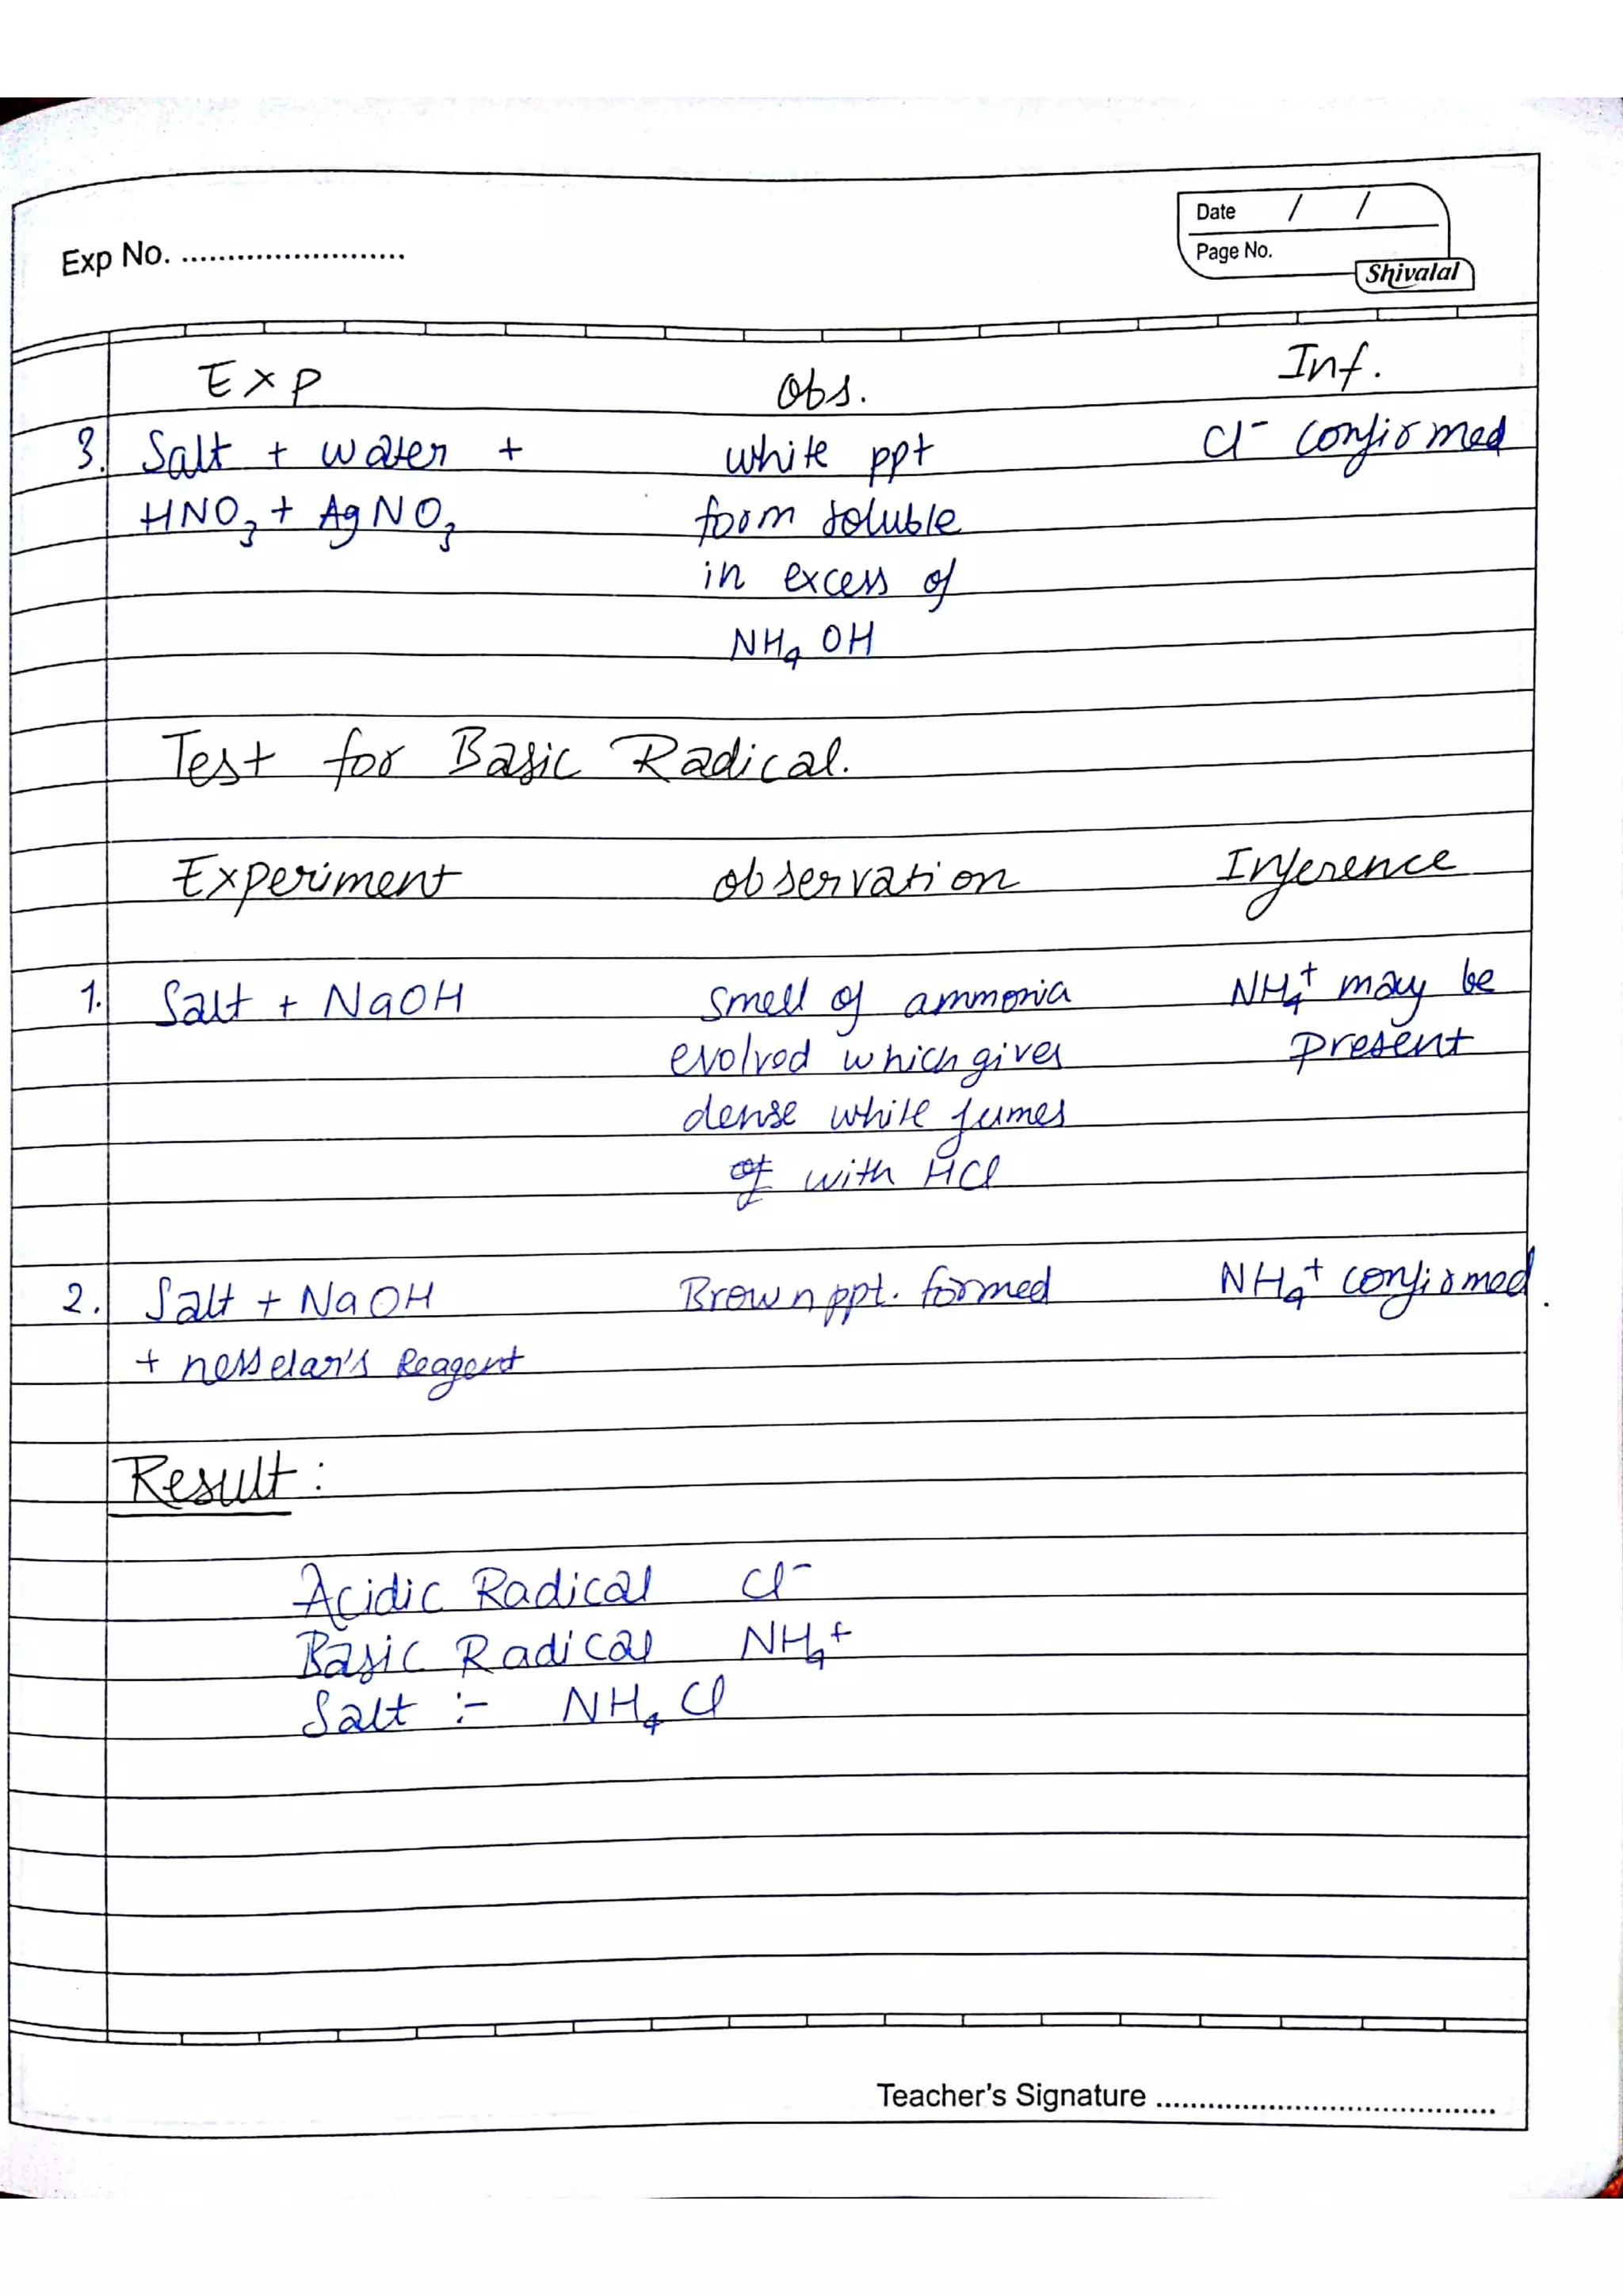 Date / /
Exp No. ..........................
Page No.
Shivalal
Exp Obs. Inf.
3. Salt + water + white ppt Cl⁻ confirmed
HNO₃ + AgNO₃ form soluble
in excess of
NH₄OH
Test for Basic Radical.
Experiment observation Inference
1. Salt + NaOH Smell of ammonia NH₄⁺ may be
evolved which gives present
dense white fumes
with HCl
2. Salt + NaOH Brown ppt. formed NH₄⁺ confirmed.
+ nesselar's Reagent
Result :
Acidic Radical Cl⁻
Basic Radical NH₄⁺
Salt :- NH₄Cl
Teacher's Signature .......................................